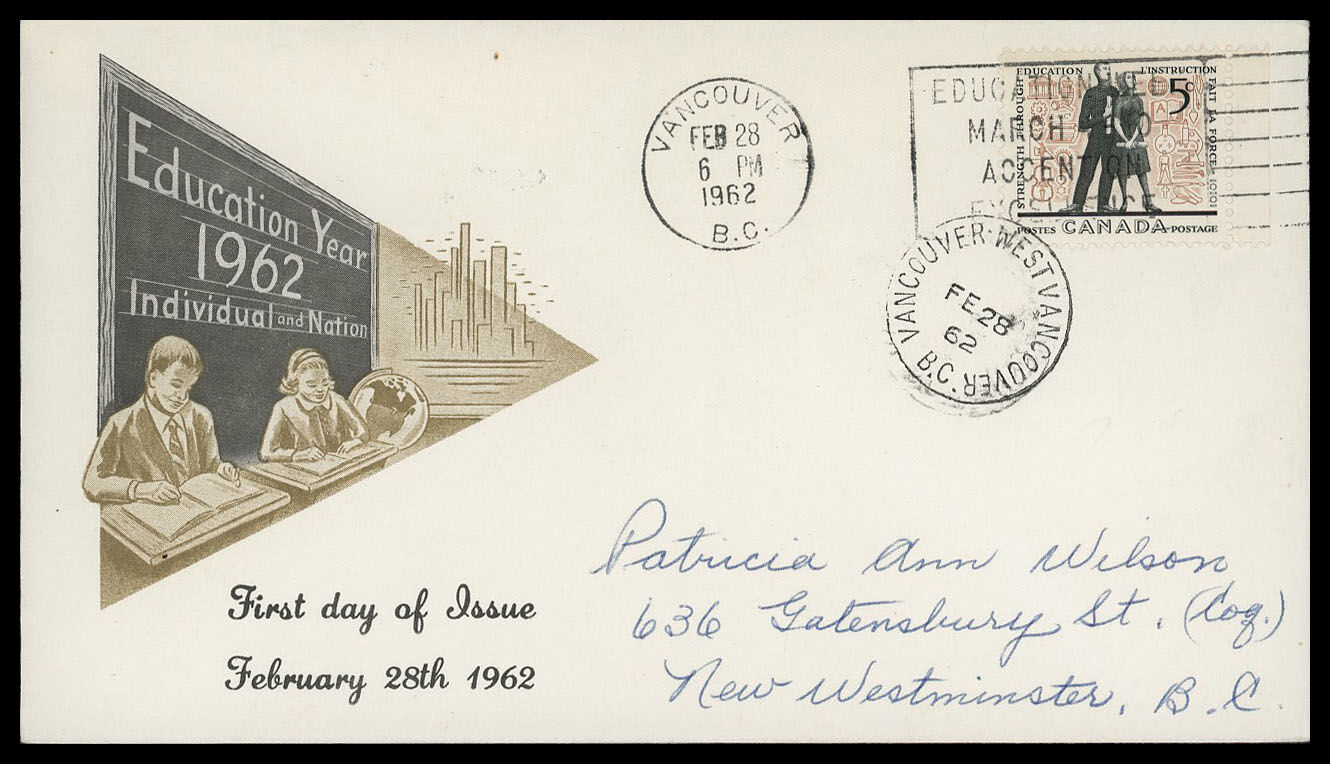 Education Year
1962
Individual and Nation
First day of Issue
February 28th 1962
VANCOUVER
FEB 28
6 PM
1962
B.C.
MARCH
ACCENT ON
EDUCATION L'INSTRUCTION
STRENGTH THROUGH
FAIT LA FORCE
5c
POSTES CANADA POSTAGE
VANCOUVER-WEST VANCOUVER
FE 28
62
B.C.
Patricia Ann Wilson
636 Gatensbury St. (Coq.)
New Westminster, B.C.